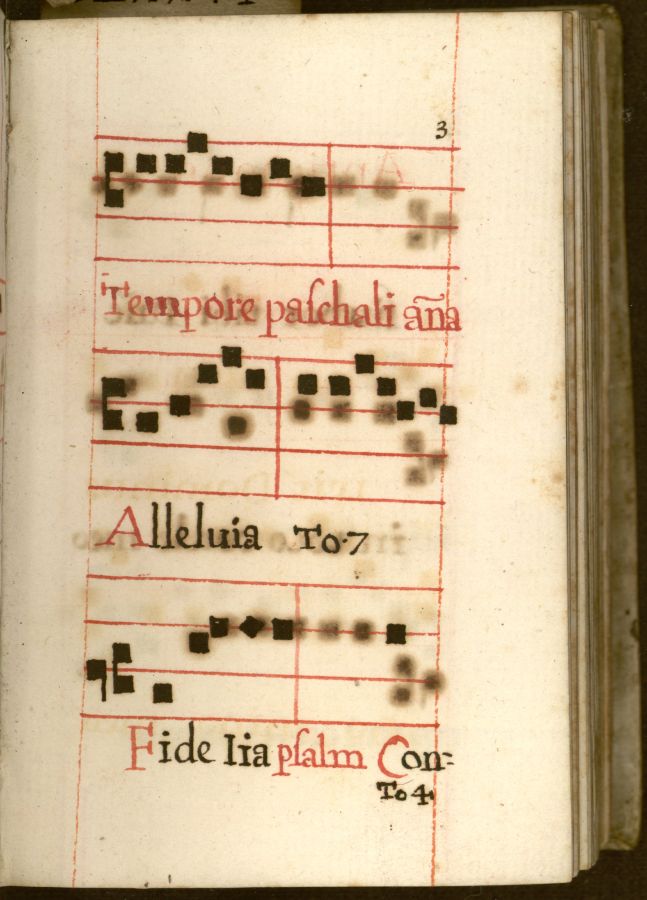 3
Tempore paſchali aña
Alleluia To·7
Fide lia pſalm Con:
To 4